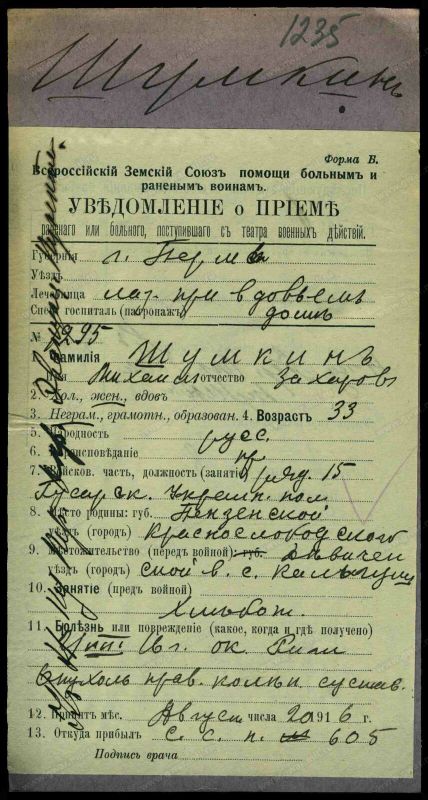 1235
Шумкинъ
Форма Б.
Всероссійскій Земскій Союзъ помощи больнымъ и
раненымъ воинамъ.
УВѢДОМЛЕНІЕ о ПРІЕМѢ
раненаго или больного, поступившаго съ театра военныхъ дѣйствій.
Губернія г. Пермь
Уѣздъ
Лечебница лаз. при вдовьемъ
Спец. госпиталь (патронажъ) домѣ
№ 1295
Фамилія Шумкинъ
Имя Михаилъ отчество Захаровъ
2. Хол., жен., вдовъ
3. Неграм., грамотн., образован. 4. Возрастъ 33
5. Народность русс.
6. Вѣроисповѣданіе пр
7. Войсков. часть, должность (занятіе) ряд. 15
Гусарск. Укрѣпл. пол
8. Мѣсто родины: губ. Пензенской
уѣздъ (городъ) Краснослободского
9. Мѣстожительство (передъ войной): губ. Дѣвичен
уѣздъ (городъ) ской в. с.
10. Занятіе (предъ войной)
Хлѣбоп.
11. Болѣзнь или поврежденіе (какое, когда и гдѣ получено)
ок. Риги
прав. колѣн сустав.
12. Принятъ мѣс. Август числа 20 1916 г.
13. Откуда прибылъ с. с. п. № 605
Подпись врача